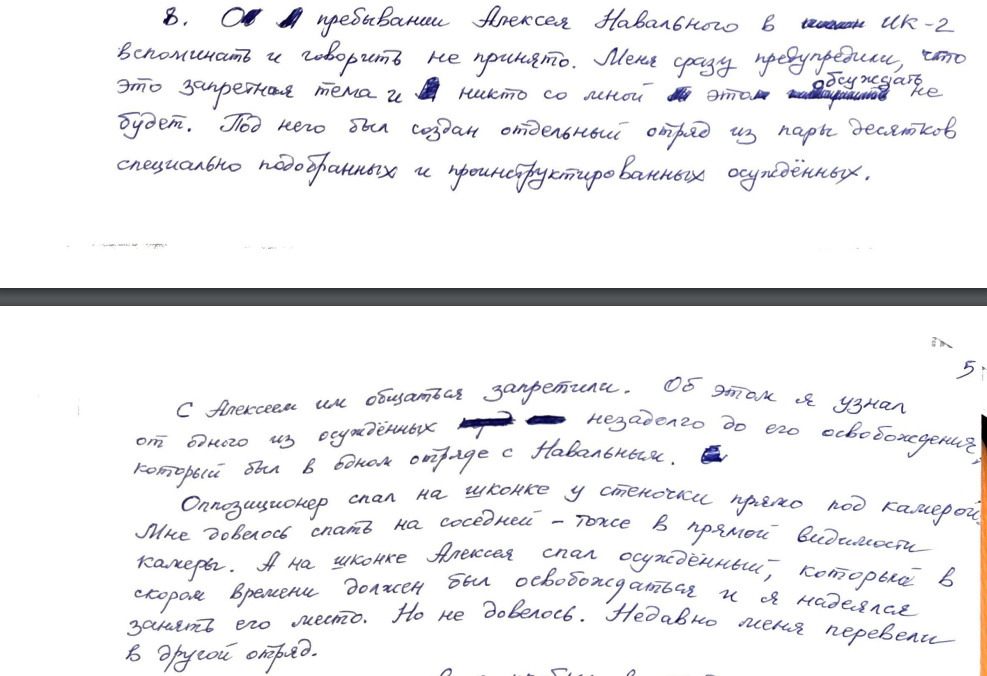 8. О пребывании Алексея Навального в ИК-2
вспоминать и говорить не принято. Меня сразу предупредили, что
это запретная тема и никто со мной это обсуждать не
будет. Под него был создан отдельный отряд из пары десятков
специально подобранных и проинструктированных осуждённых.
5
С Алексеем им общаться запретили. Об этом я узнал
от одного из осуждённых незадолго до его освобождения,
который был в одном отряде с Навальным.
Оппозиционер спал на шконке у стеночки прямо под камерой.
Мне довелось спать на соседней – тоже в прямой видимости
камеры. А на шконке Алексея спал осуждённый, который в
скором времени должен был освобождаться и я надеялся
занять его место. Но не довелось. Недавно меня перевели
в другой отряд.